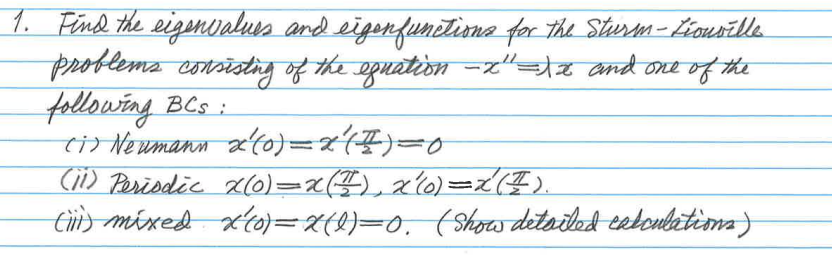 1. Find the eigenvalues and eigenfunctions for the Sturm-Liouville
problems consisting of the equation -x''=λx and one of the
following BCs :
(i) Neumann x'(0)=x'(π/2)=0
(ii) Periodic x(0)=x(π/2), x'(0)=x'(π/2).
(iii) mixed x'(0)=x(l)=0. (Show detailed calculations)